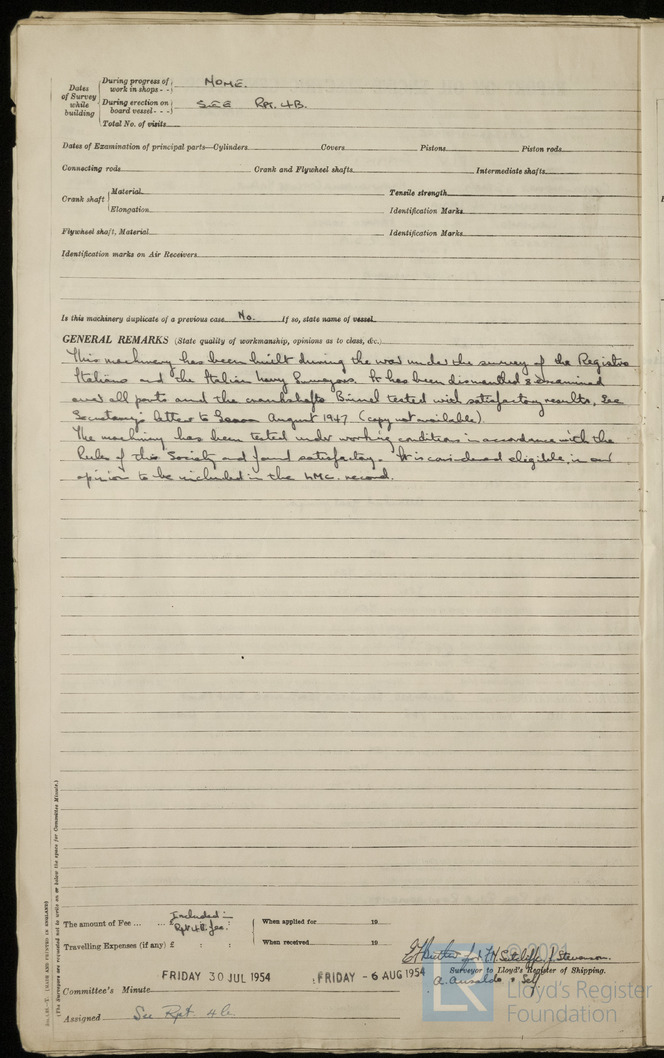 Dates of Survey while building
During progress of work in shops - - NONE.
During erection on board vessel - - - SEE Rpt. 4B.
Total No. of visits
Dates of Examination of principal parts—Cylinders Covers Pistons Piston rods
Connecting rods Crank and Flywheel shafts Intermediate shafts
Crank shaft Material Tensile strength
Elongation Identification Marks
Flywheel shaft, Material Identification Marks
Identification marks on Air Receivers
Is this machinery duplicate of a previous case No. If so, state name of vessel
GENERAL REMARKS (State quality of workmanship, opinions as to class, &c.)
This machinery has been built during the war under the survey of the Registro
Italiano and the Italian Navy Surveyors. It has been dismantled & examined
over all parts and the crankshafts Brinel tested with satisfactory results, see
Secretary's letter to Genoa August 1947 (copy not available).
The machinery has been tested under working conditions in accordance with the
Rules of this Society and found satisfactory. It is considered eligible, in our
opinion to be included in the LMC. record.
The amount of Fee ... ... Included in Rpt 4B. fee. When applied for 19
Travelling Expenses (if any) £ : : When received 19
for H Sutcliffe, J Stevenson.
Surveyor to Lloyd's Register of Shipping.
A. Ansaldo & Self
FRIDAY 30 JUL 1954 FRIDAY - 6 AUG 1954
Committee's Minute
Assigned See Rpt 4b.
(MADE AND PRINTED IN ENGLAND)
(The Surveyors are requested not to write on or below the space for Committee Minute.)
© 2021
Lloyd's Register
Foundation
LR